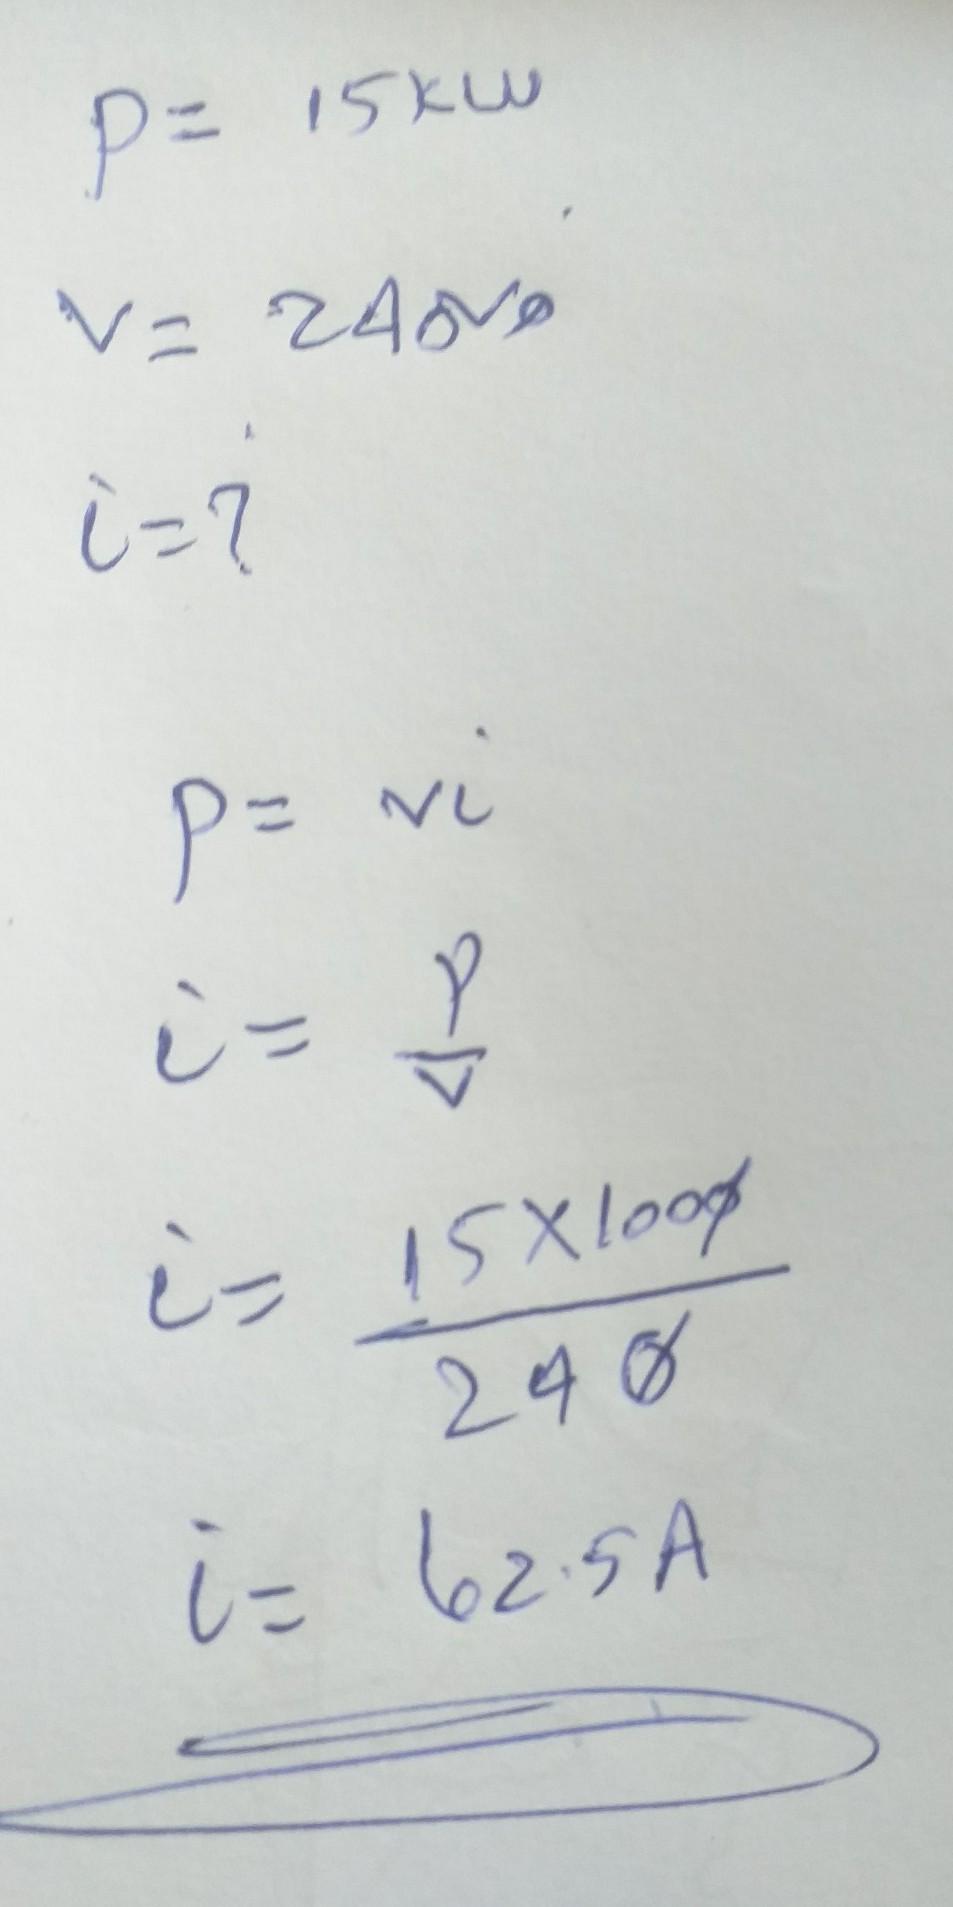 P= 15kw
V= 240Vo
i=?
P= vi
i= P
V
i= 15X1000
240
i= 62.5A